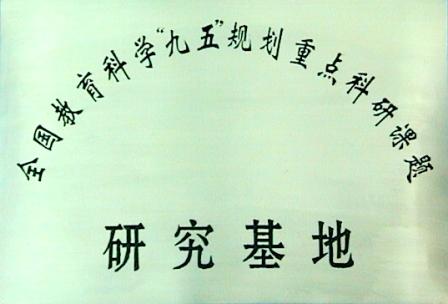 全国教育科学“九五”规划重点科研课题
研究基地